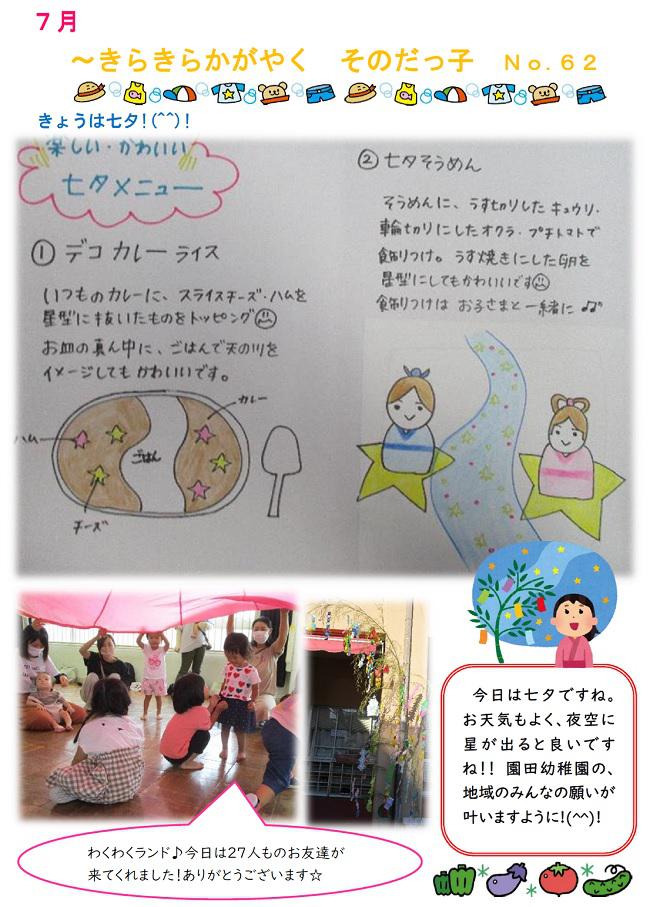 7月
～きらきらかがやく　そのだっ子　Ｎｏ.６２
きょうは七夕！(^^)！
楽しい・かわいい
七夕メニュー
① デコ カレー ライス
いつものカレーに、スライスチーズ・ハムを
星型に抜いたものをトッピング
お皿の真ん中に、ごはんで天の川を
イメージしても かわいいです。
カレー
ハム
ごはん
チーズ
② 七夕そうめん
そうめんに、うす切りした キュウリ・
輪切りにしたオクラ・プチトマトで
飾りつけ。うす焼きにした卵を
星型にしてもかわいいです
飾りつけは お子さまと一緒に ♪♫
今日は七夕ですね。
お天気もよく、夜空に
星が出ると良いです
ね！！ 園田幼稚園の、
地域のみんなの願いが
叶いますように！(^^)！
わくわくランド♪今日は27人ものお友達が
来てくれました！ありがとうございます☆